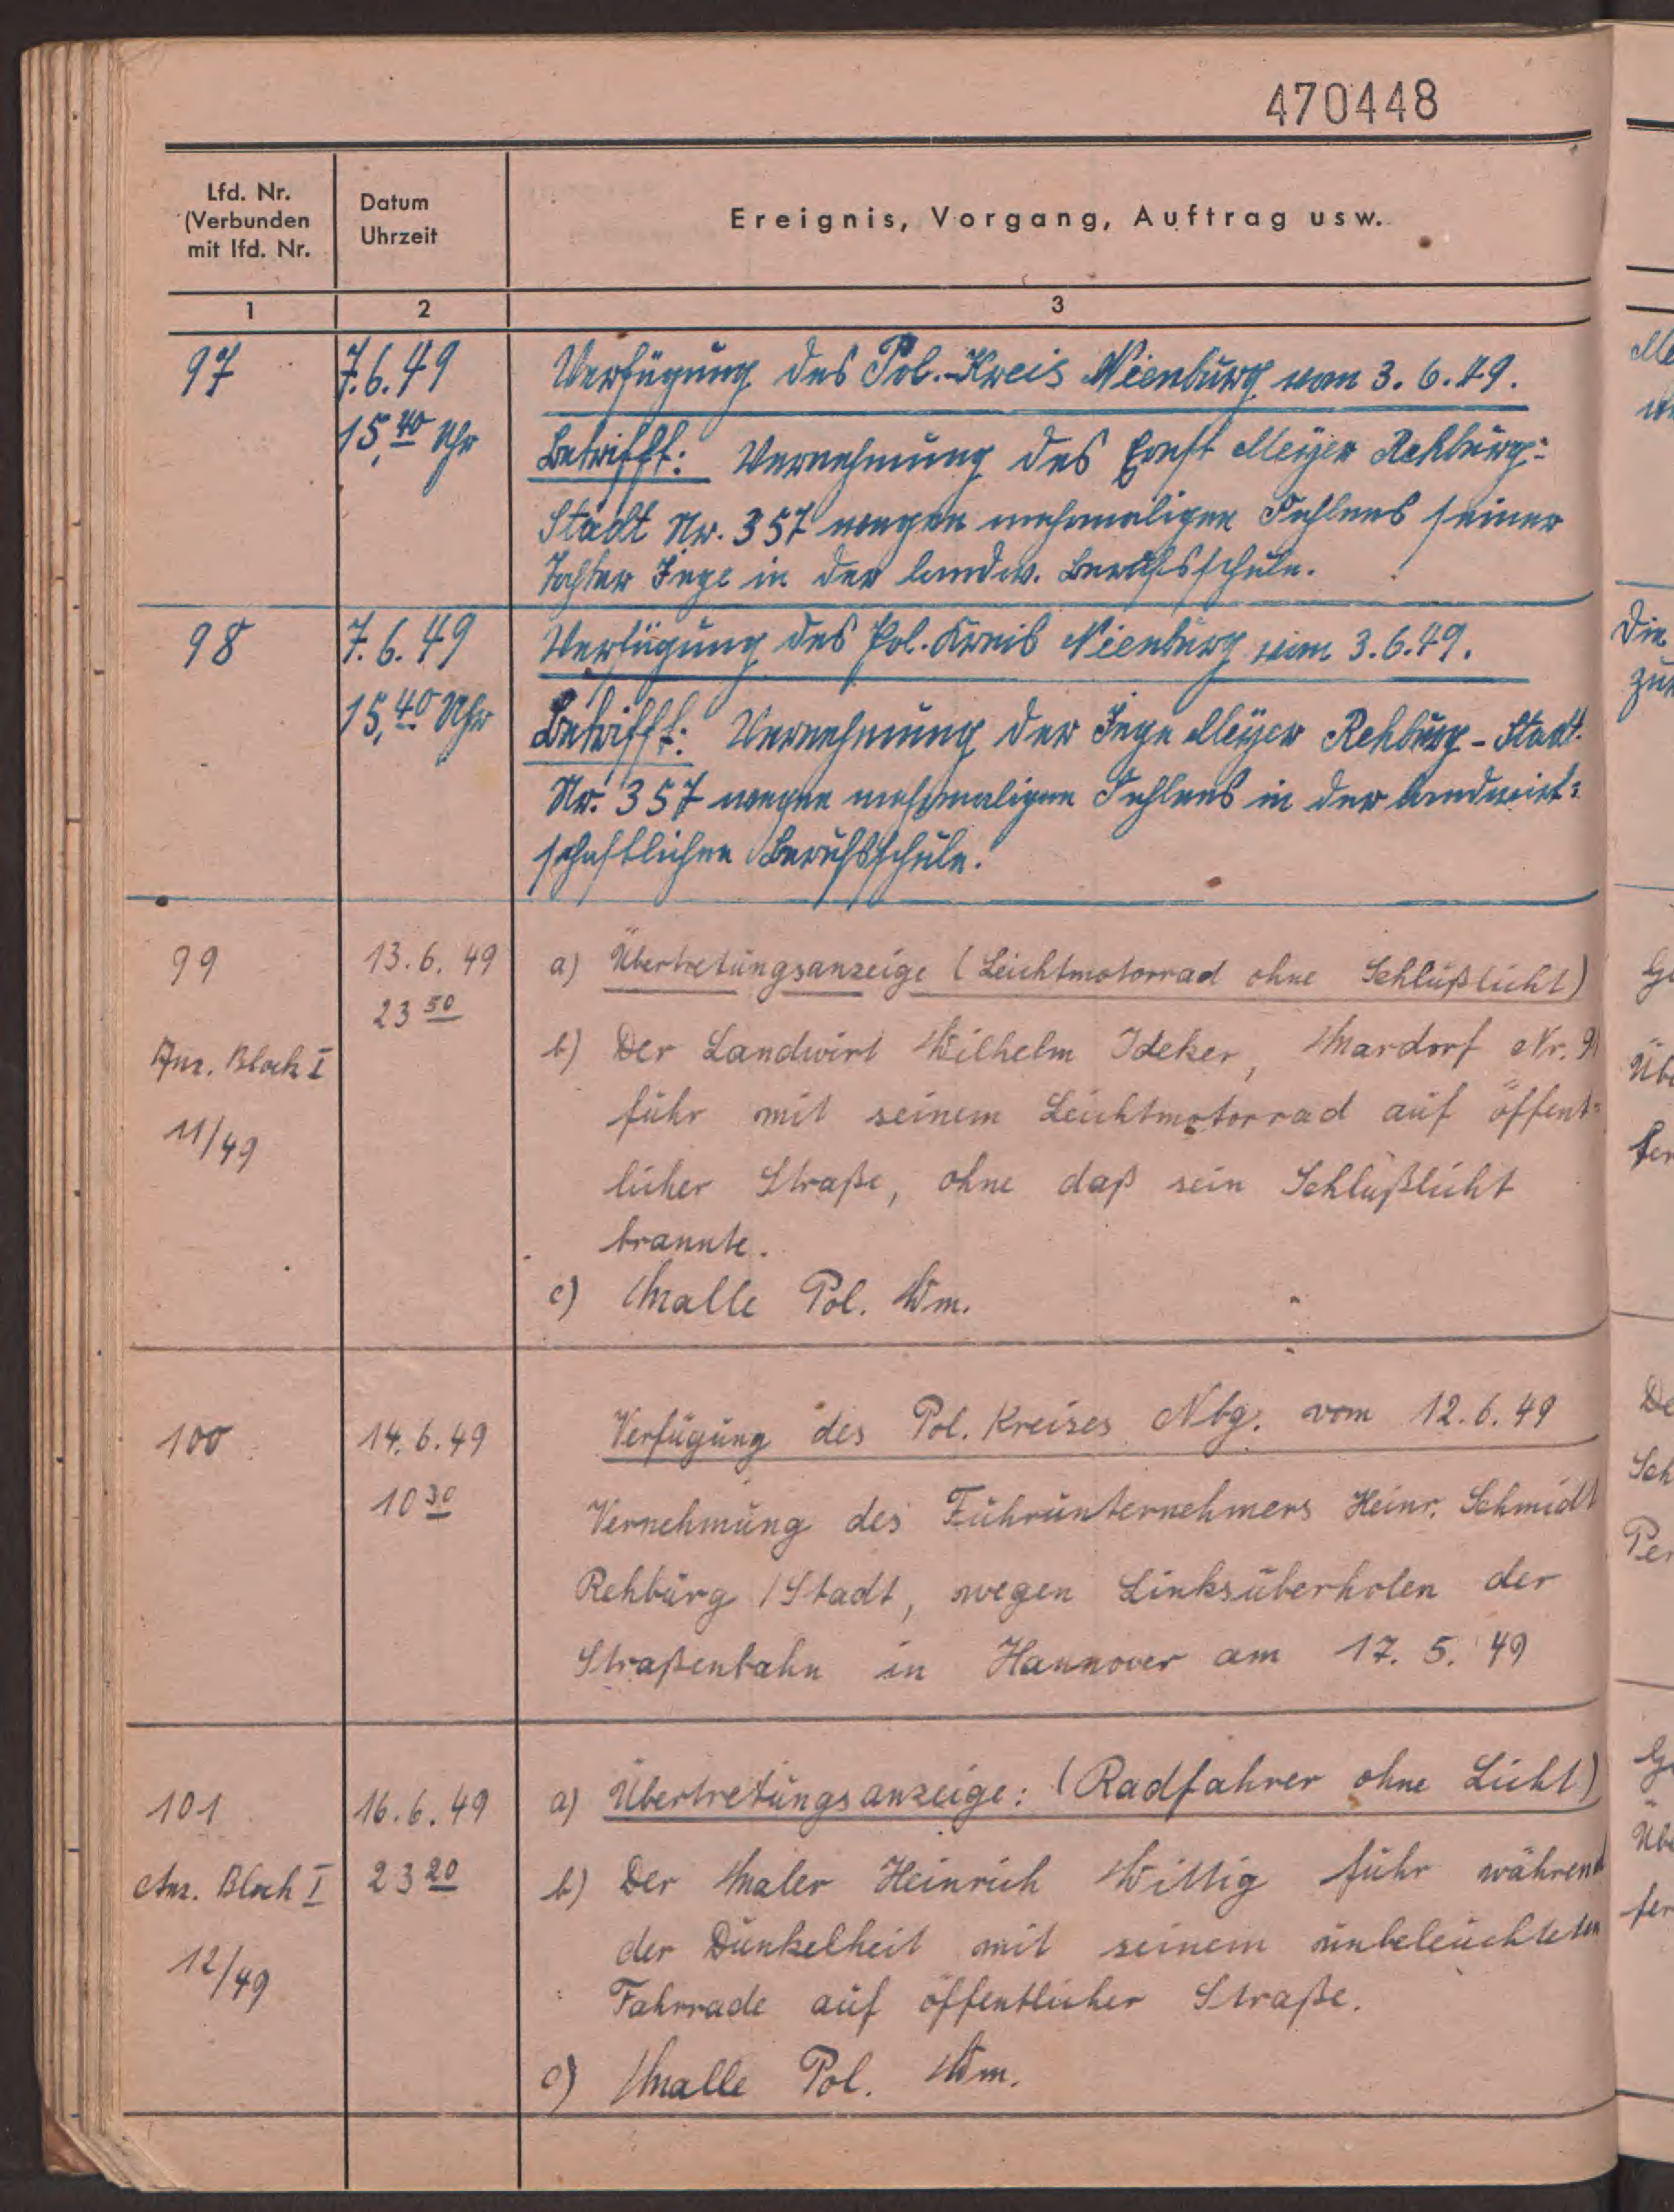 470448
Lfd. Nr.
(Verbunden
mit lfd. Nr.
Datum
Uhrzeit
Ereignis, Vorgang, Auftrag usw.
1
2
3
97
7.6.49
15,40 Uhr
Verfügung des Pol.-Kreis Nienburg vom 3.6.49.
Betrifft: Vernehmung des Ernst Meyer Rehburg=
Stadt Nr. 357 wegen mehrmaligen Fehlens seiner
Tochter Inge in der landw. Berufsschule.
98
7.6.49
15,40 Uhr
Verfügung des Pol. Kreis Nienburg vom 3.6.49.
Betrifft: Vernehmung der Inge Meyer Rehburg-Stadt
Nr. 357 wegen mehrmaligen Fehlens in der landwirt=
schaftlichen Berufsschule.
99
Anz. Block I
11/49
13.6.49
23 50
a) Übertretungsanzeige (Leichtmotorrad ohne Schlußlicht)
b) Der Landwirt Wilhelm Ideker, Mardorf Nr.
fuhr mit seinem Leichtmotorrad auf öffent=
licher Straße, ohne daß sein Schlußlicht
brannte.
c) Malle Pol. Wm.
100
14.6.49
10 30
Verfügung des Pol. Kreises Nbg. vom 12.6.49
Vernehmung des Fuhrunternehmers Heinr. Schmidt
Rehburg/Stadt, wegen Linksüberholen der
Straßenbahn in Hannover am 17.5.49
101
Anz. Block I
12/49
16.6.49
23 20
a) Übertretungsanzeige: (Radfahrer ohne Licht)
b) Der Maler Heinrich Wittig fuhr während
der Dunkelheit mit seinem unbeleuchteten
Fahrrade auf öffentlicher Straße.
c) Malle Pol. Wm.